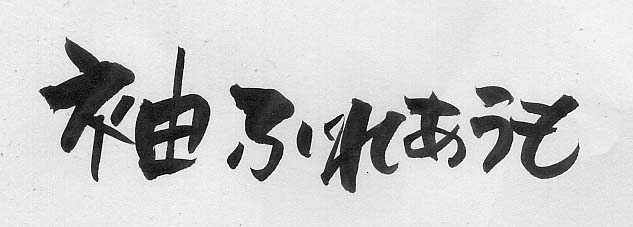 袖ふれあうも